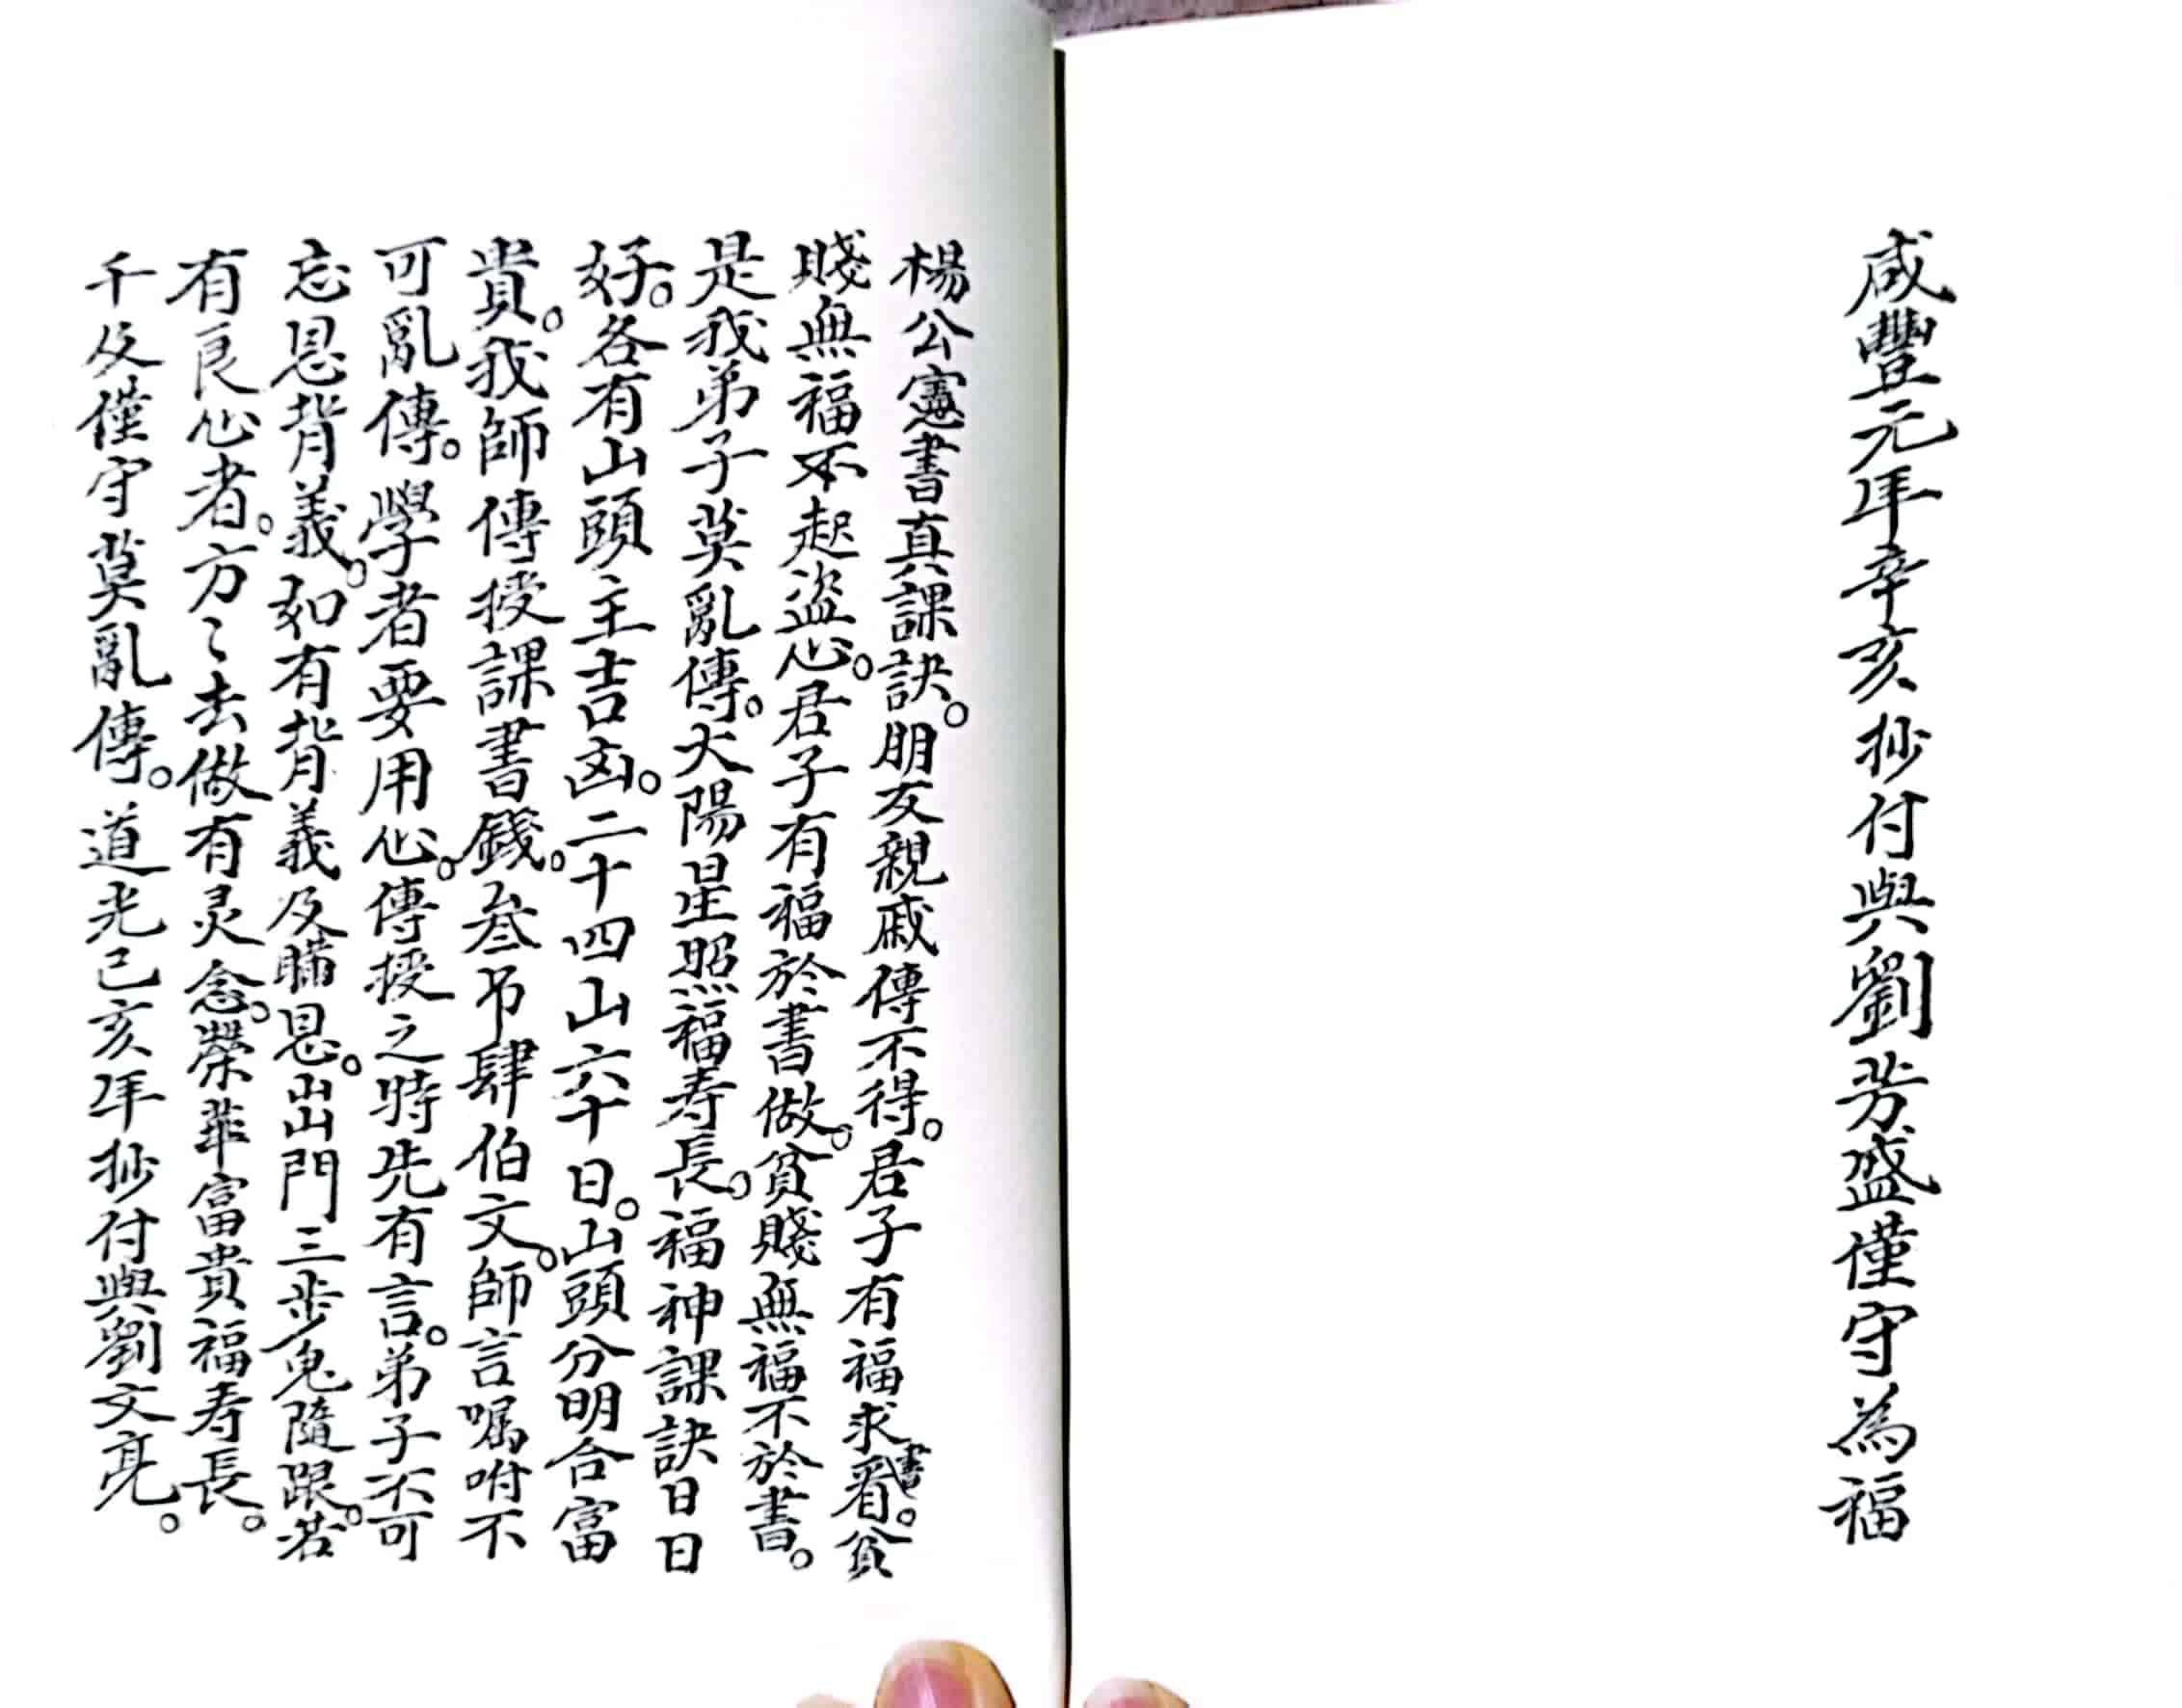 咸豐元年辛亥抄付與劉芳盛僅守為福
楊公憲書真課訣。朋友親戚傳不得。君子有福求書看。貧
賤無福不起盜心。君子有福於書做。貧賤無福不於書。
是我弟子莫亂傳。太陽星照福寿長。福神課訣日日
好。各有山頭主吉凶。二十四山六十日。山頭分明合富
貴。我師傳授課書錢。叁吊肆伯文。師言嘱咐不
可亂傳。學者要用心。傳授之時先有言。弟子不可
忘恩背義。如有背義及瞞恩。出門三步鬼隨跟。若
有良心者。方〻去做有灵念。榮華富貴福寿長。
千及僅守莫亂傳。道光己亥年抄付與劉文亮。